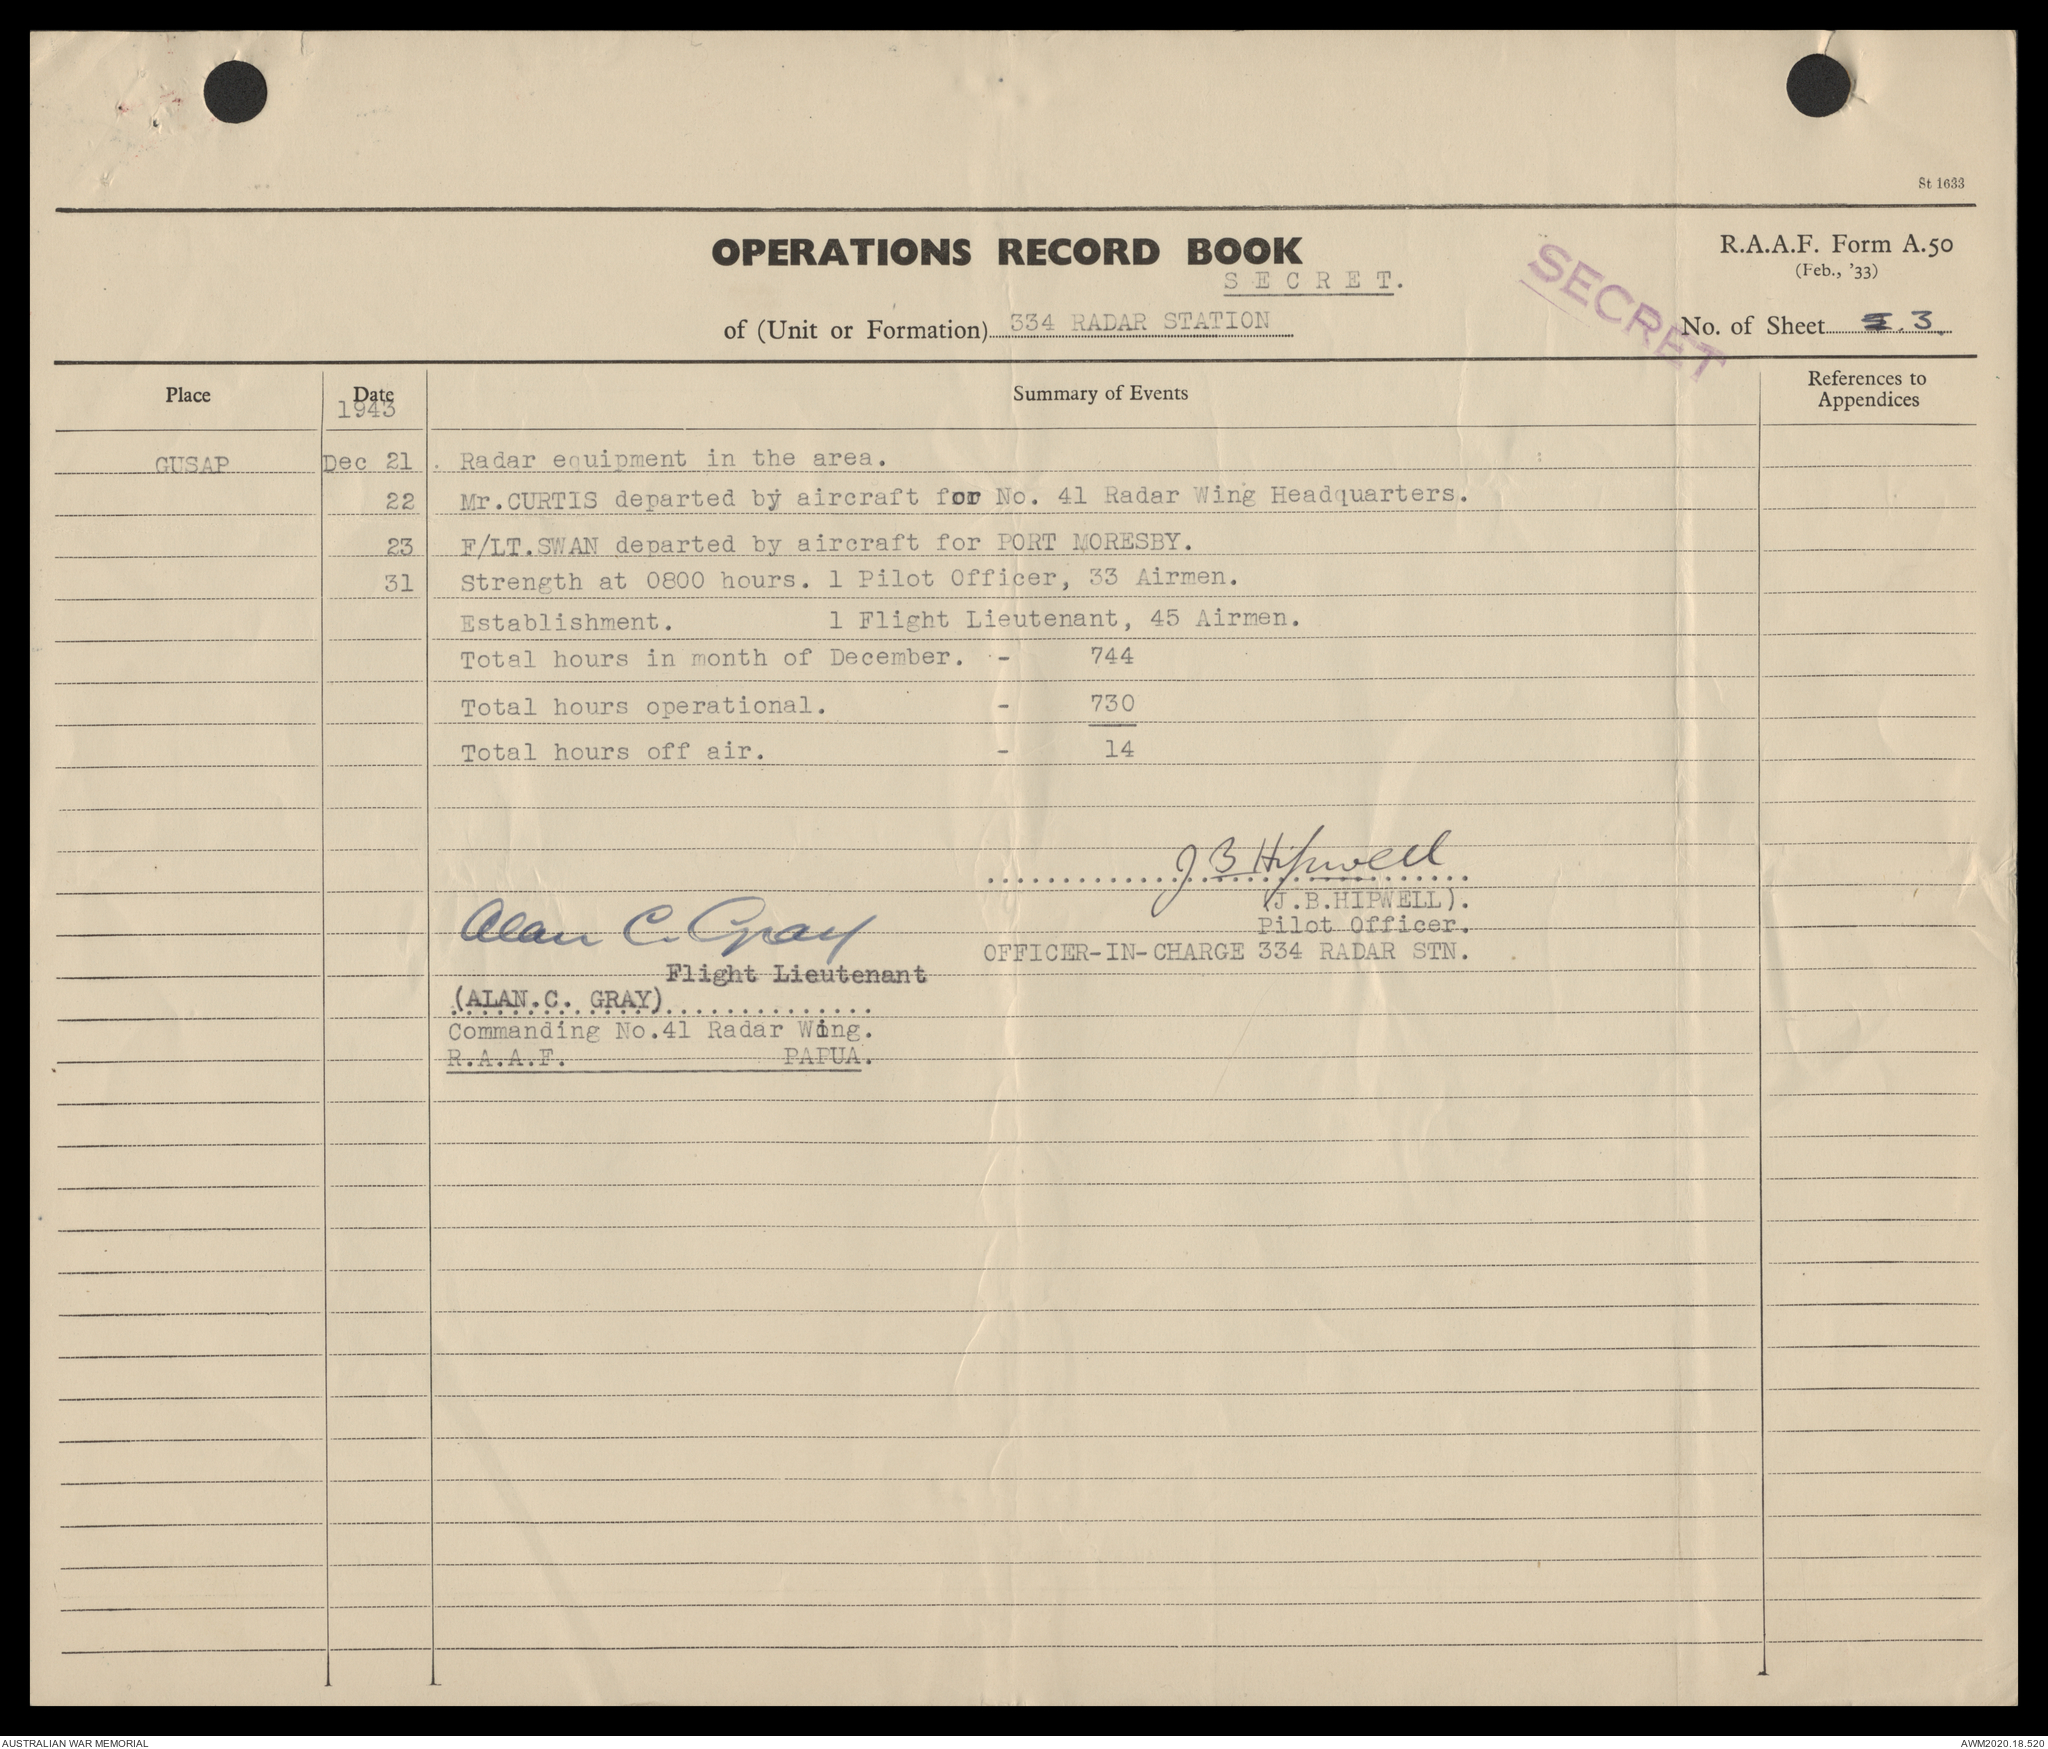 St 1633
OPERATIONS RECORD BOOK
R.A.A.F. Form A.50
(Feb., '33)
S E C R E T.
SECRET
of (Unit or Formation) 334 RADAR STATION
No. of Sheet 3.
Place Date Summary of Events References to Appendices
1943
GUSAP Dec 21. Radar equipment in the area.
22 Mr.CURTIS departed by aircraft for No. 41 Radar Wing Headquarters.
23 F/LT.SWAN departed by aircraft for PORT MORESBY.
31 Strength at 0800 hours. 1 Pilot Officer, 33 Airmen.
Establishment. 1 Flight Lieutenant, 45 Airmen.
Total hours in month of December. - 744
Total hours operational. - 730
Total hours off air. - 14
J B Hipwell
(J.B.HIPWELL).
Pilot Officer.
OFFICER-IN-CHARGE 334 RADAR STN.
Alan C. Gray
Flight Lieutenant
(ALAN.C. GRAY)
Commanding No.41 Radar Wing.
R.A.A.F. PAPUA.
AUSTRALIAN WAR MEMORIAL
AWM2020.18.520